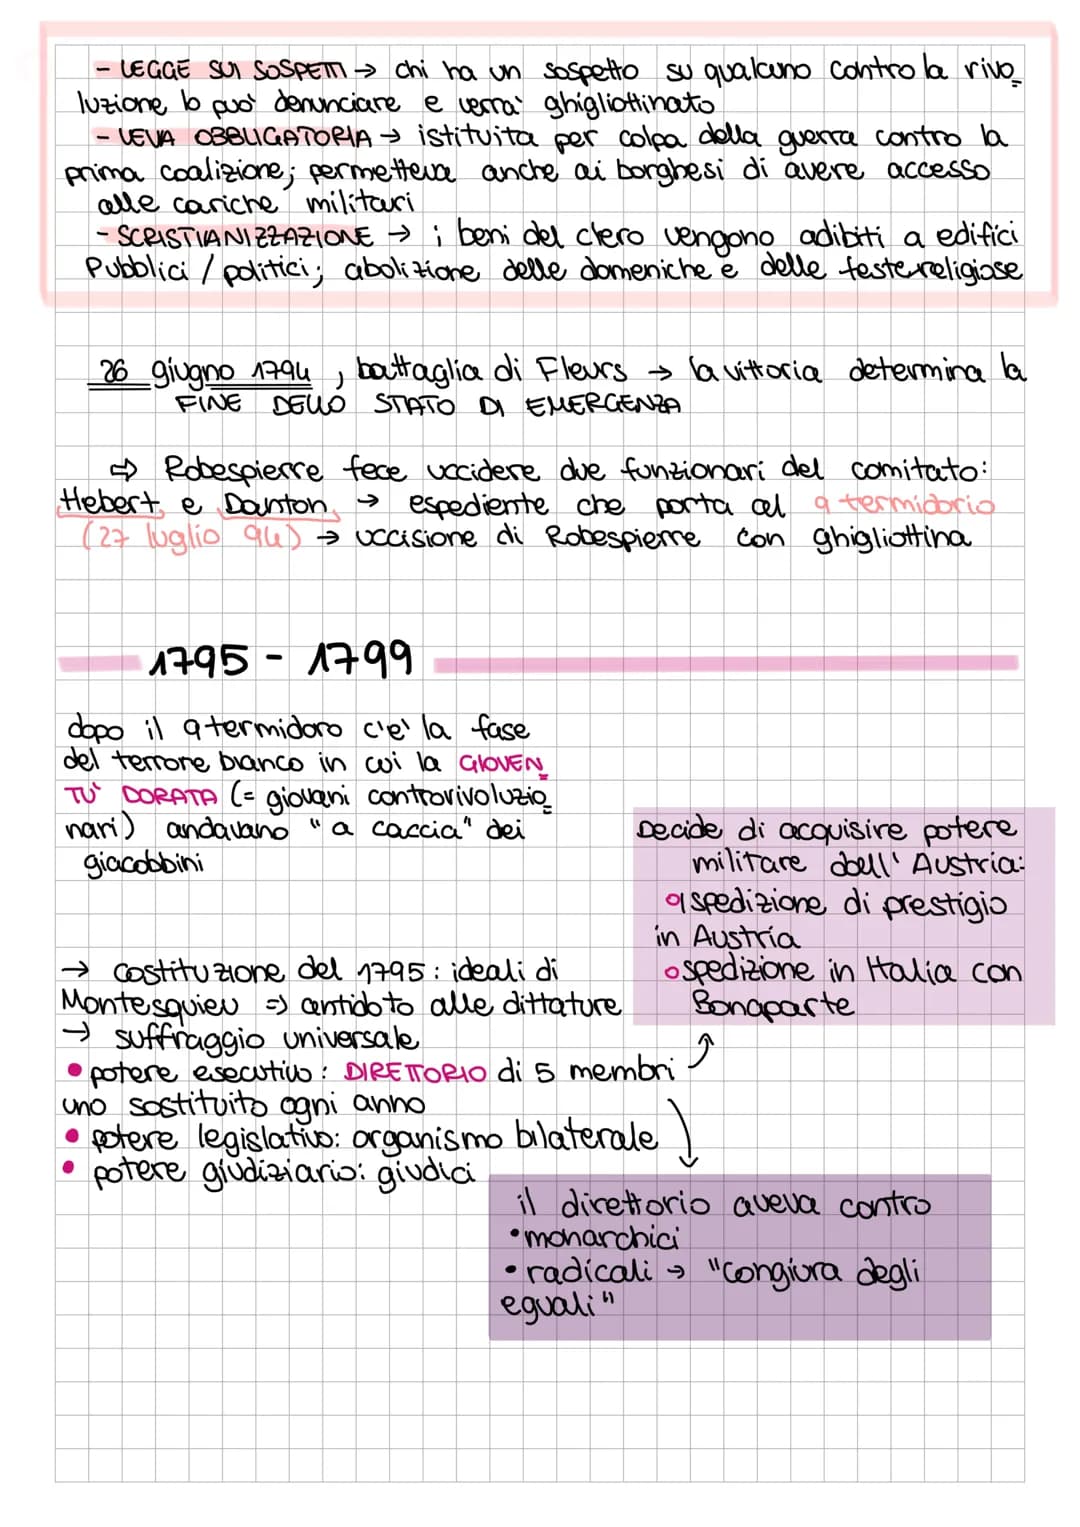 - LEGGE SUI SOSPETTI → chi ha un sospetto su qualcuno contro la rivo
luzione lo può denunciare e verrà ghigliottinato
- LEVA OBBLIGATORIA → istituita per colpa della guerra contro la
prima coalizione; permetteva anche ai borghesi di avere accesso
alle cariche militari
- SCRISTIANIZZAZIONE → i beni del clero vengono adibiti a edifici
Pubblici / politici; abolizione delle domeniche e delle feste religiose
26 giugno 1794, battaglia di Fleurs → la vittoria determina la
FINE DELLO STATO DI EMERGENZA
⇨ Robespierre fece uccidere due funzionari del comitato:
Hebert e Danton → espediente che porta al 9 termidorio
(27 luglio 94) → uccisione di Robespierre con ghigliottina
1795 - 1799
dopo il 9 termidoro c'e' la fase
del terrore bianco in cui la GIOVEN
TU' DORATA (= giovani controrivoluzio
nari) andavano "a caccia" dei
giacobbini
Decide di acquisire potere
militare dall' Austria:
spedizione di prestigio
in Austria
spedizione in Italia con
Bonaparte
→ costituzione del 1795: ideali di
Montesquieu => antidoto alle dittature
→ suffraggio universale
• potere esecutivo: DIRETTORIO di 5 membri
uno sostituito ogni anno
• potere legislativo: organismo bilaterale
• potere giudiziario: giudici
il direttorio aveva contro
• monarchici
• radicali → "congiura degli
eguali"